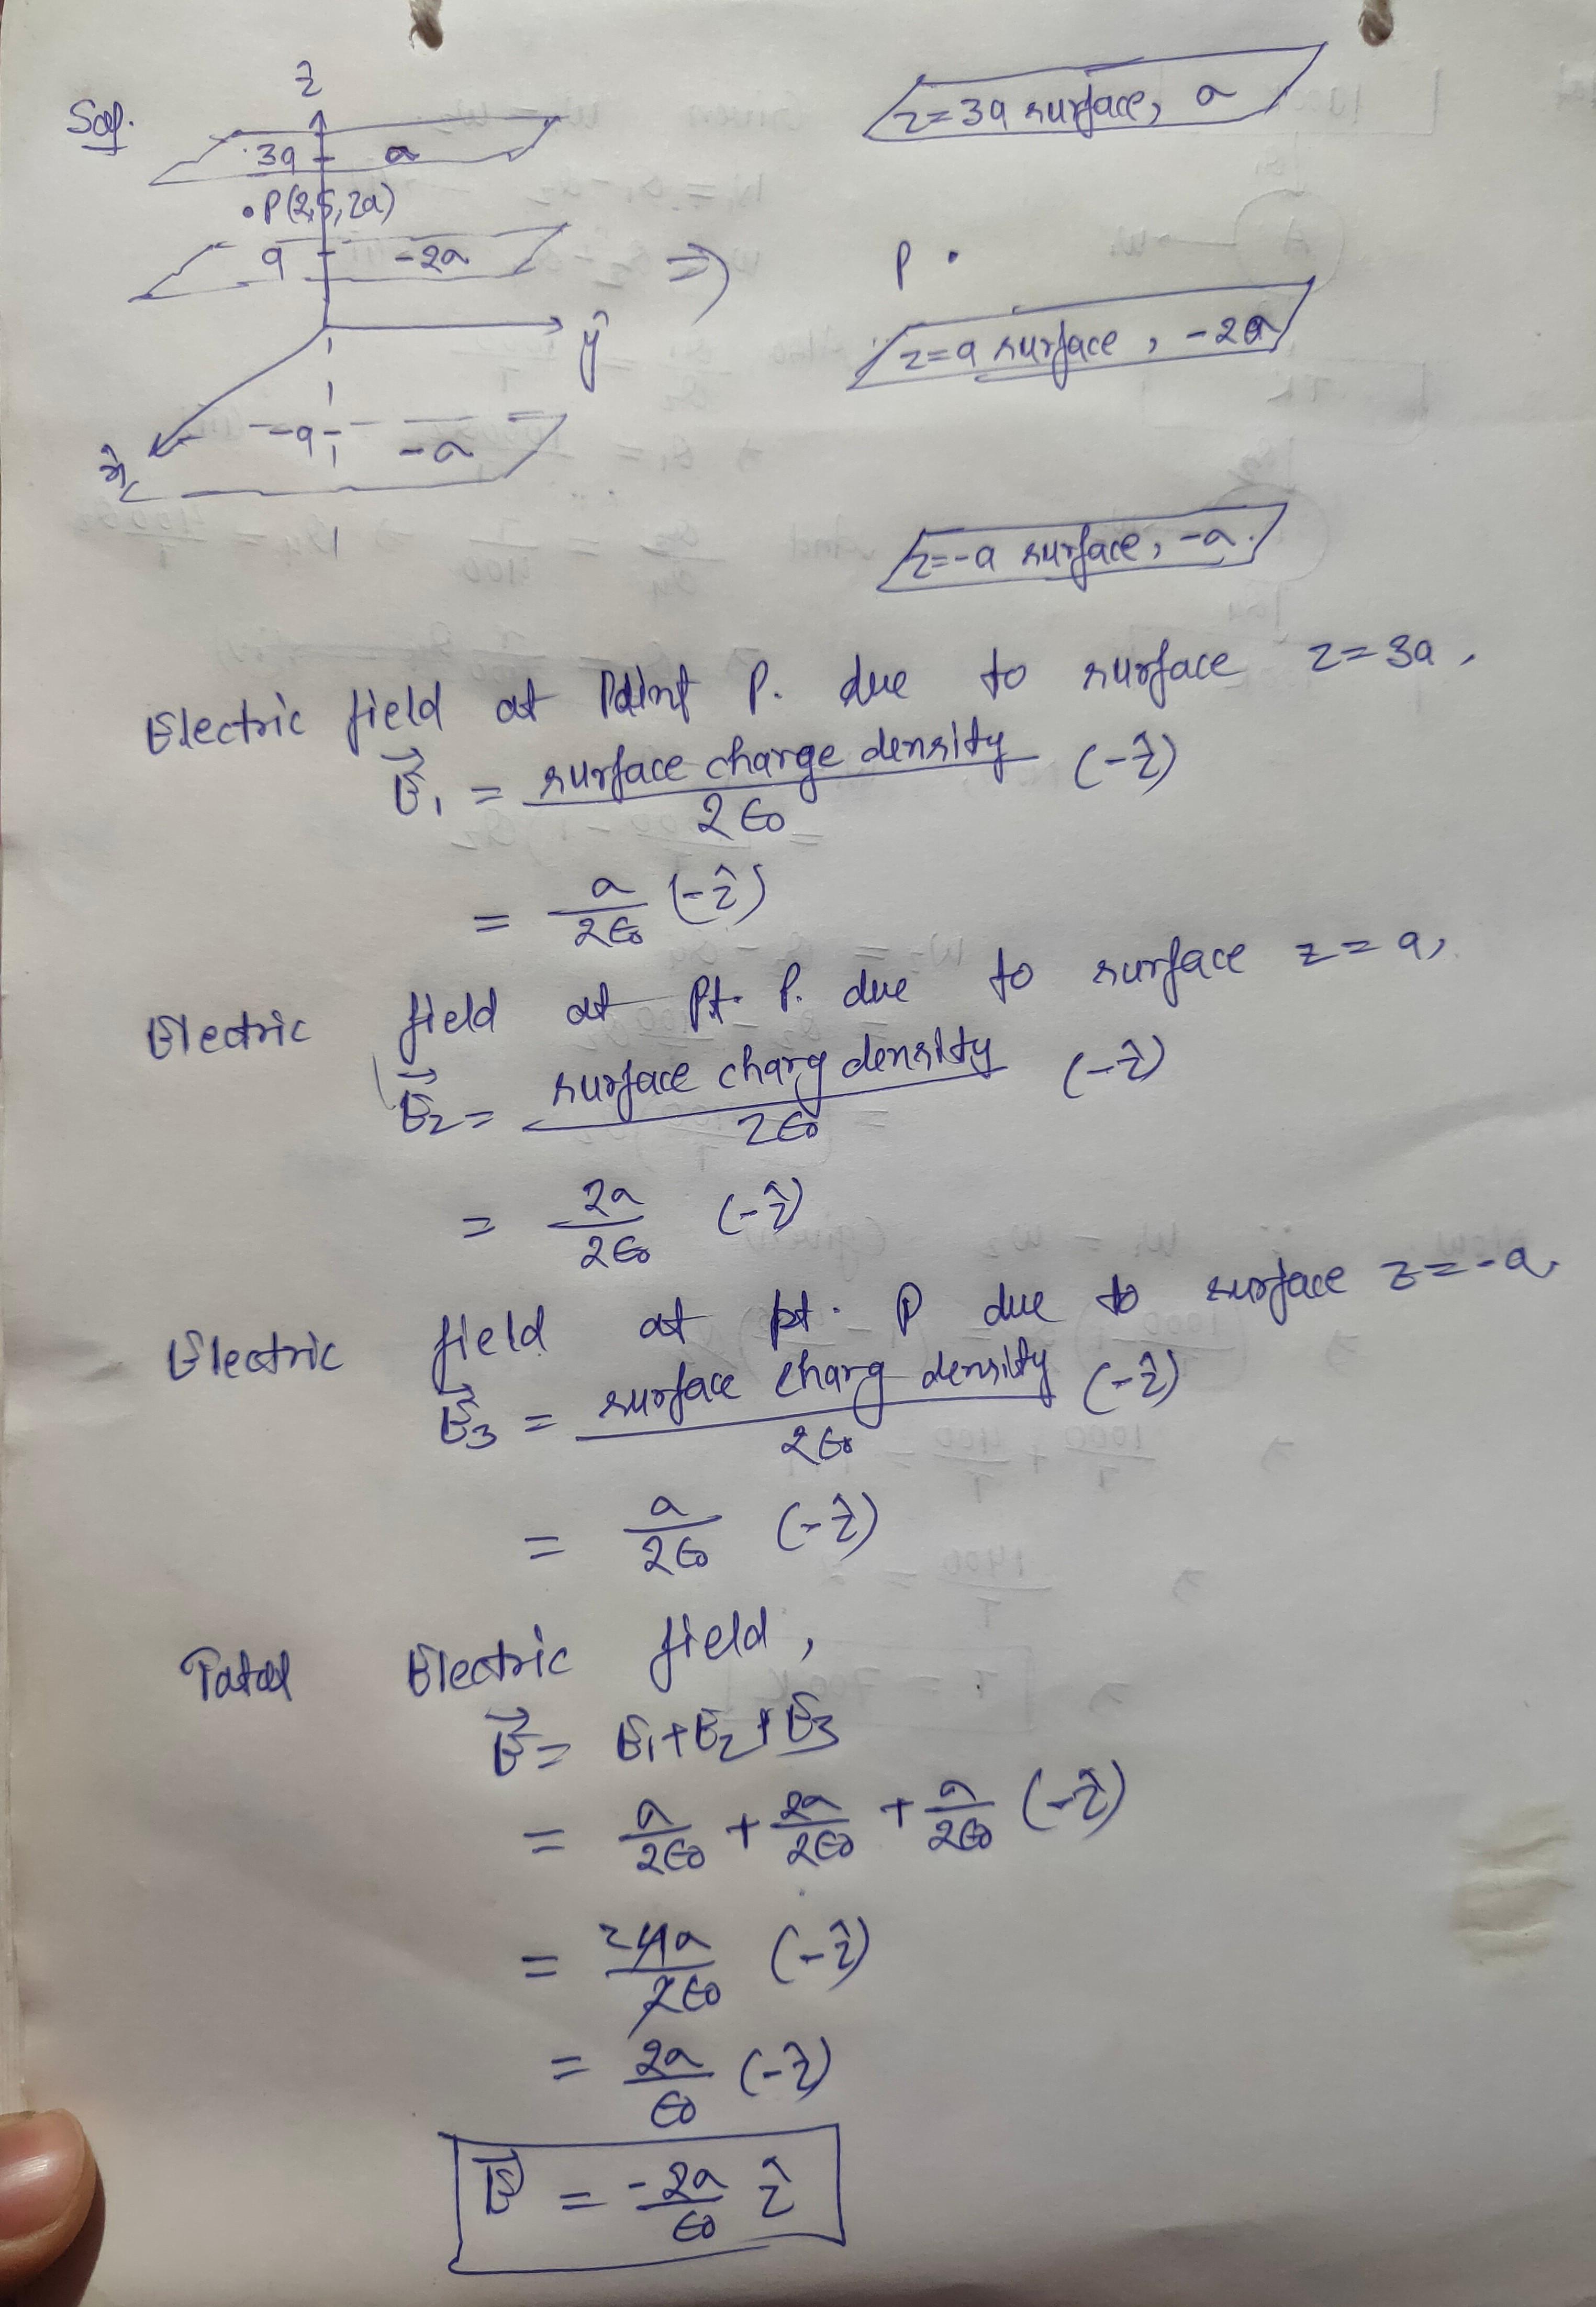 Sol.
z
3a σ
P(2,5,2a)
a -2σ
ŷ
-a -σ
x̂
z=3a surface, σ
⇒ P .
z=a surface, -2σ
z=-a surface, -σ.
Electric field at Point P. due to surface z=3a,
E⃗₁ = surface charge density / 2ϵ₀ (-ẑ)
= σ/2ϵ₀ (-ẑ)
Electric field at Pt. P. due to surface z=a,
E⃗₂ = surface charg density / 2ϵ₀ (-ẑ)
= 2σ/2ϵ₀ (-ẑ)
Electric field at pt. P due to surface z=-a,
E⃗₃ = surface charg density / 2ϵ₀ (-ẑ)
= σ/2ϵ₀ (-ẑ)
Total Electric field,
E⃗ = E₁+E₂+E₃
= σ/2ϵ₀ + 2σ/2ϵ₀ + σ/2ϵ₀ (-ẑ)
= 4σ/2ϵ₀ (-ẑ)
= 2σ/ϵ₀ (-ẑ)
E⃗ = -2σ/ϵ₀ ẑ